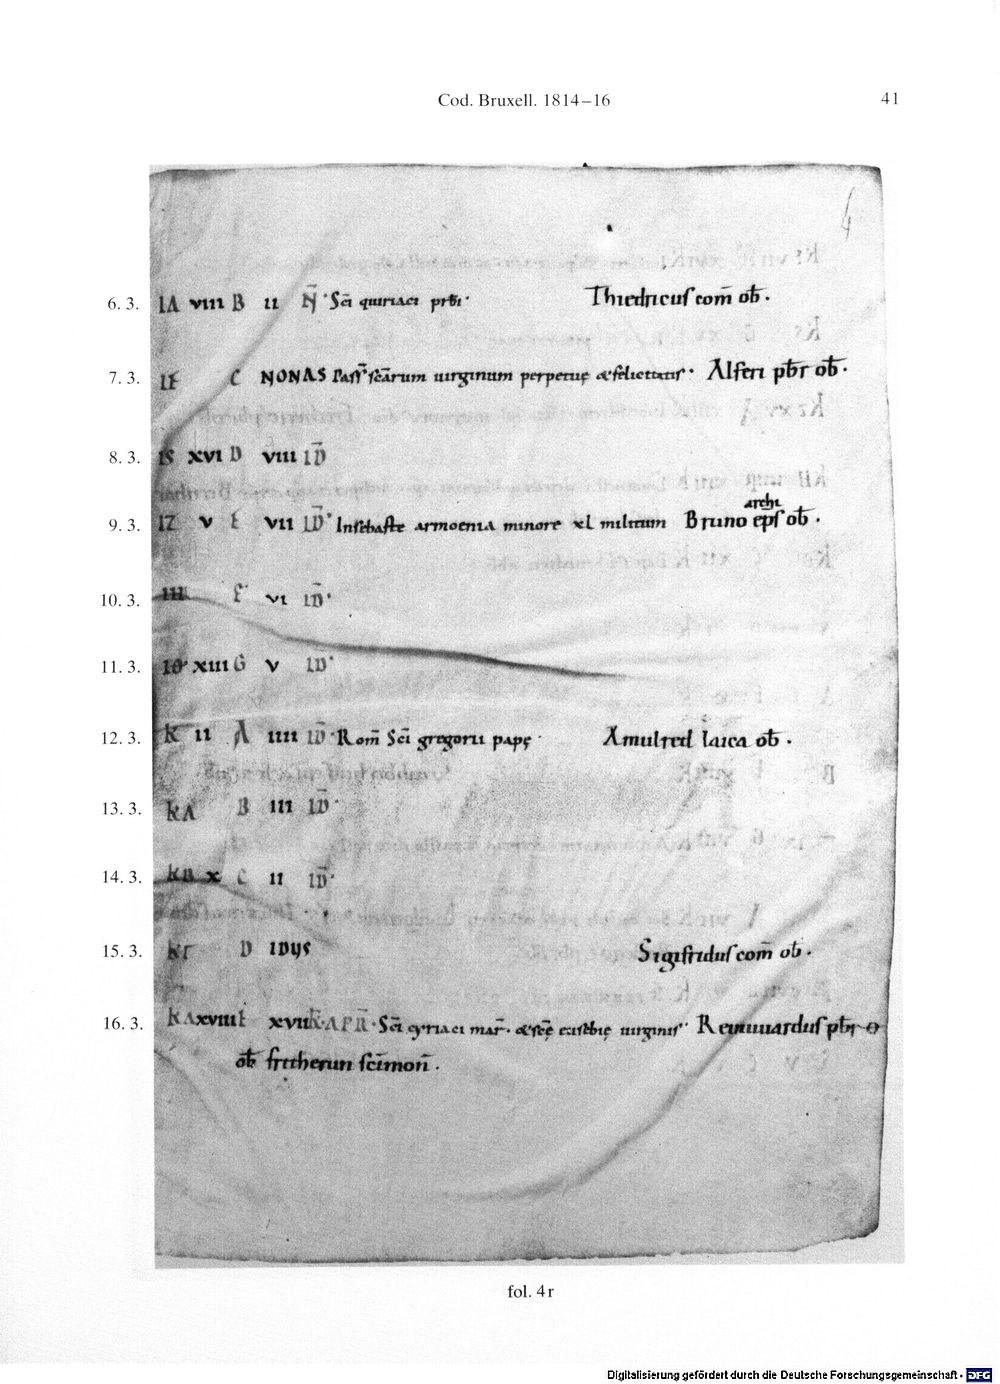 Cod. Bruxell. 1814–16 41
6. 3. IA VIII B II N̄ · Sc̄i quiriaci prb̄i ·   Thiedricus com̄ ob̄ ·
7. 3. C NONAS Pass̄ sc̄arum uirginum perpetuę & felicitatis · Alferi pb̄r ob̄ ·
8. 3. IS XVI D VIII ID̄
9. 3. IZ V E VII ID̄ · In sebaste armoenia minore xl militum   Bruno archi ep̄s ob̄ ·
10. 3. III F VI ID̄ ·
11. 3. XIII G V ID̄ ·
12. 3. K II A IIII ID̄ · Rom̄ Sc̄i gregorii papę ·   Amulred laica ob̄ ·
13. 3. KA B III ID̄ ·
14. 3. KB X C II ID̄ ·
15. 3. KΓ D IDVS   Sigifridus com̄ ob̄ ·
16. 3. XVIII E XVII K̄ · APR̄ · Sc̄i cyriaci mar̄ · & sc̄ę eusebię uirginis · Reinuuardus pb̄r o
ob̄ fritherun sc̄imon̄ ·
fol. 4 r
Digitalisierung gefördert durch die Deutsche Forschungsgemeinschaft · DFG